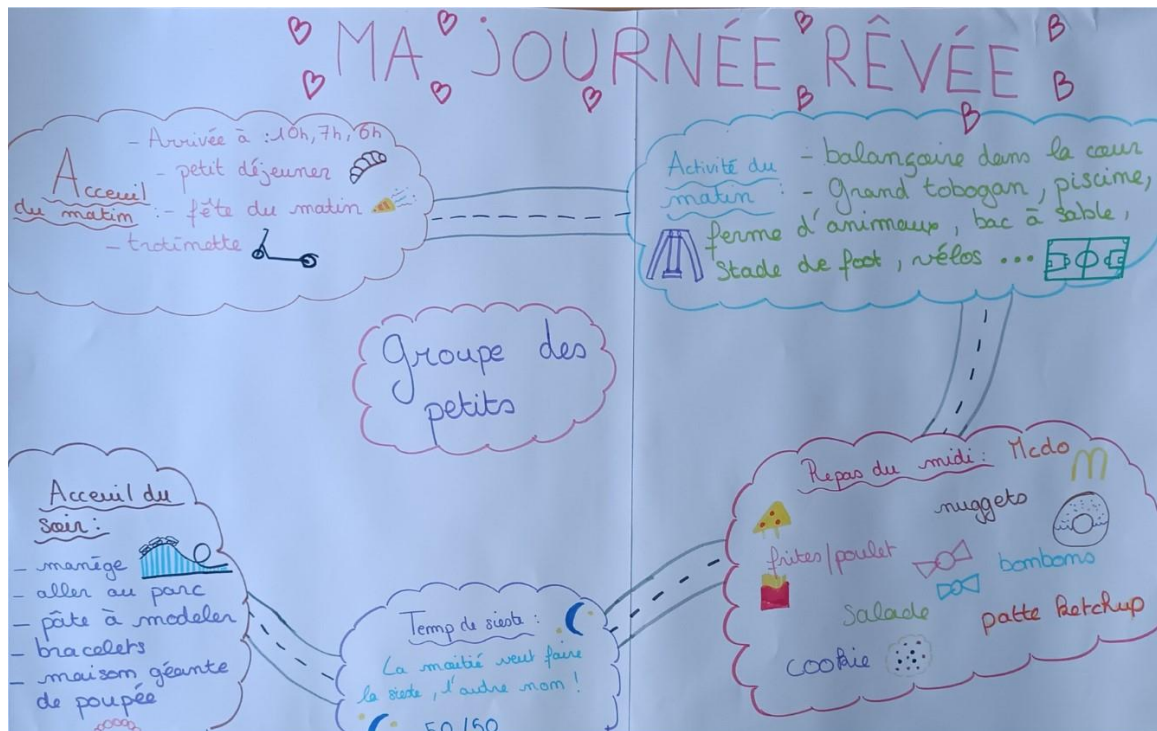 MA JOURNÉE RÊVÉE
Acceuil
du matin :
- Arrivée à : 10h, 7h, 6h
- petit déjeuner
- fête du matin
- trotinette
Activité du
matin :
- balançoire dans la cour
- Grand tobogan, piscine,
ferme d'animaux, bac à sable,
Stade de foot, vélos ...
Groupe des
petits
Repas du midi : Mcdo
nuggets
frites/poulet
bonbons
Salade
patte ketchup
cookie
Temp de sieste :
La moitié veut faire
la sieste, l'autre non !
50/50
Acceuil du
soir :
- manège
- aller au parc
- pâte à modeler
- bracelets
- maison géante
de poupée